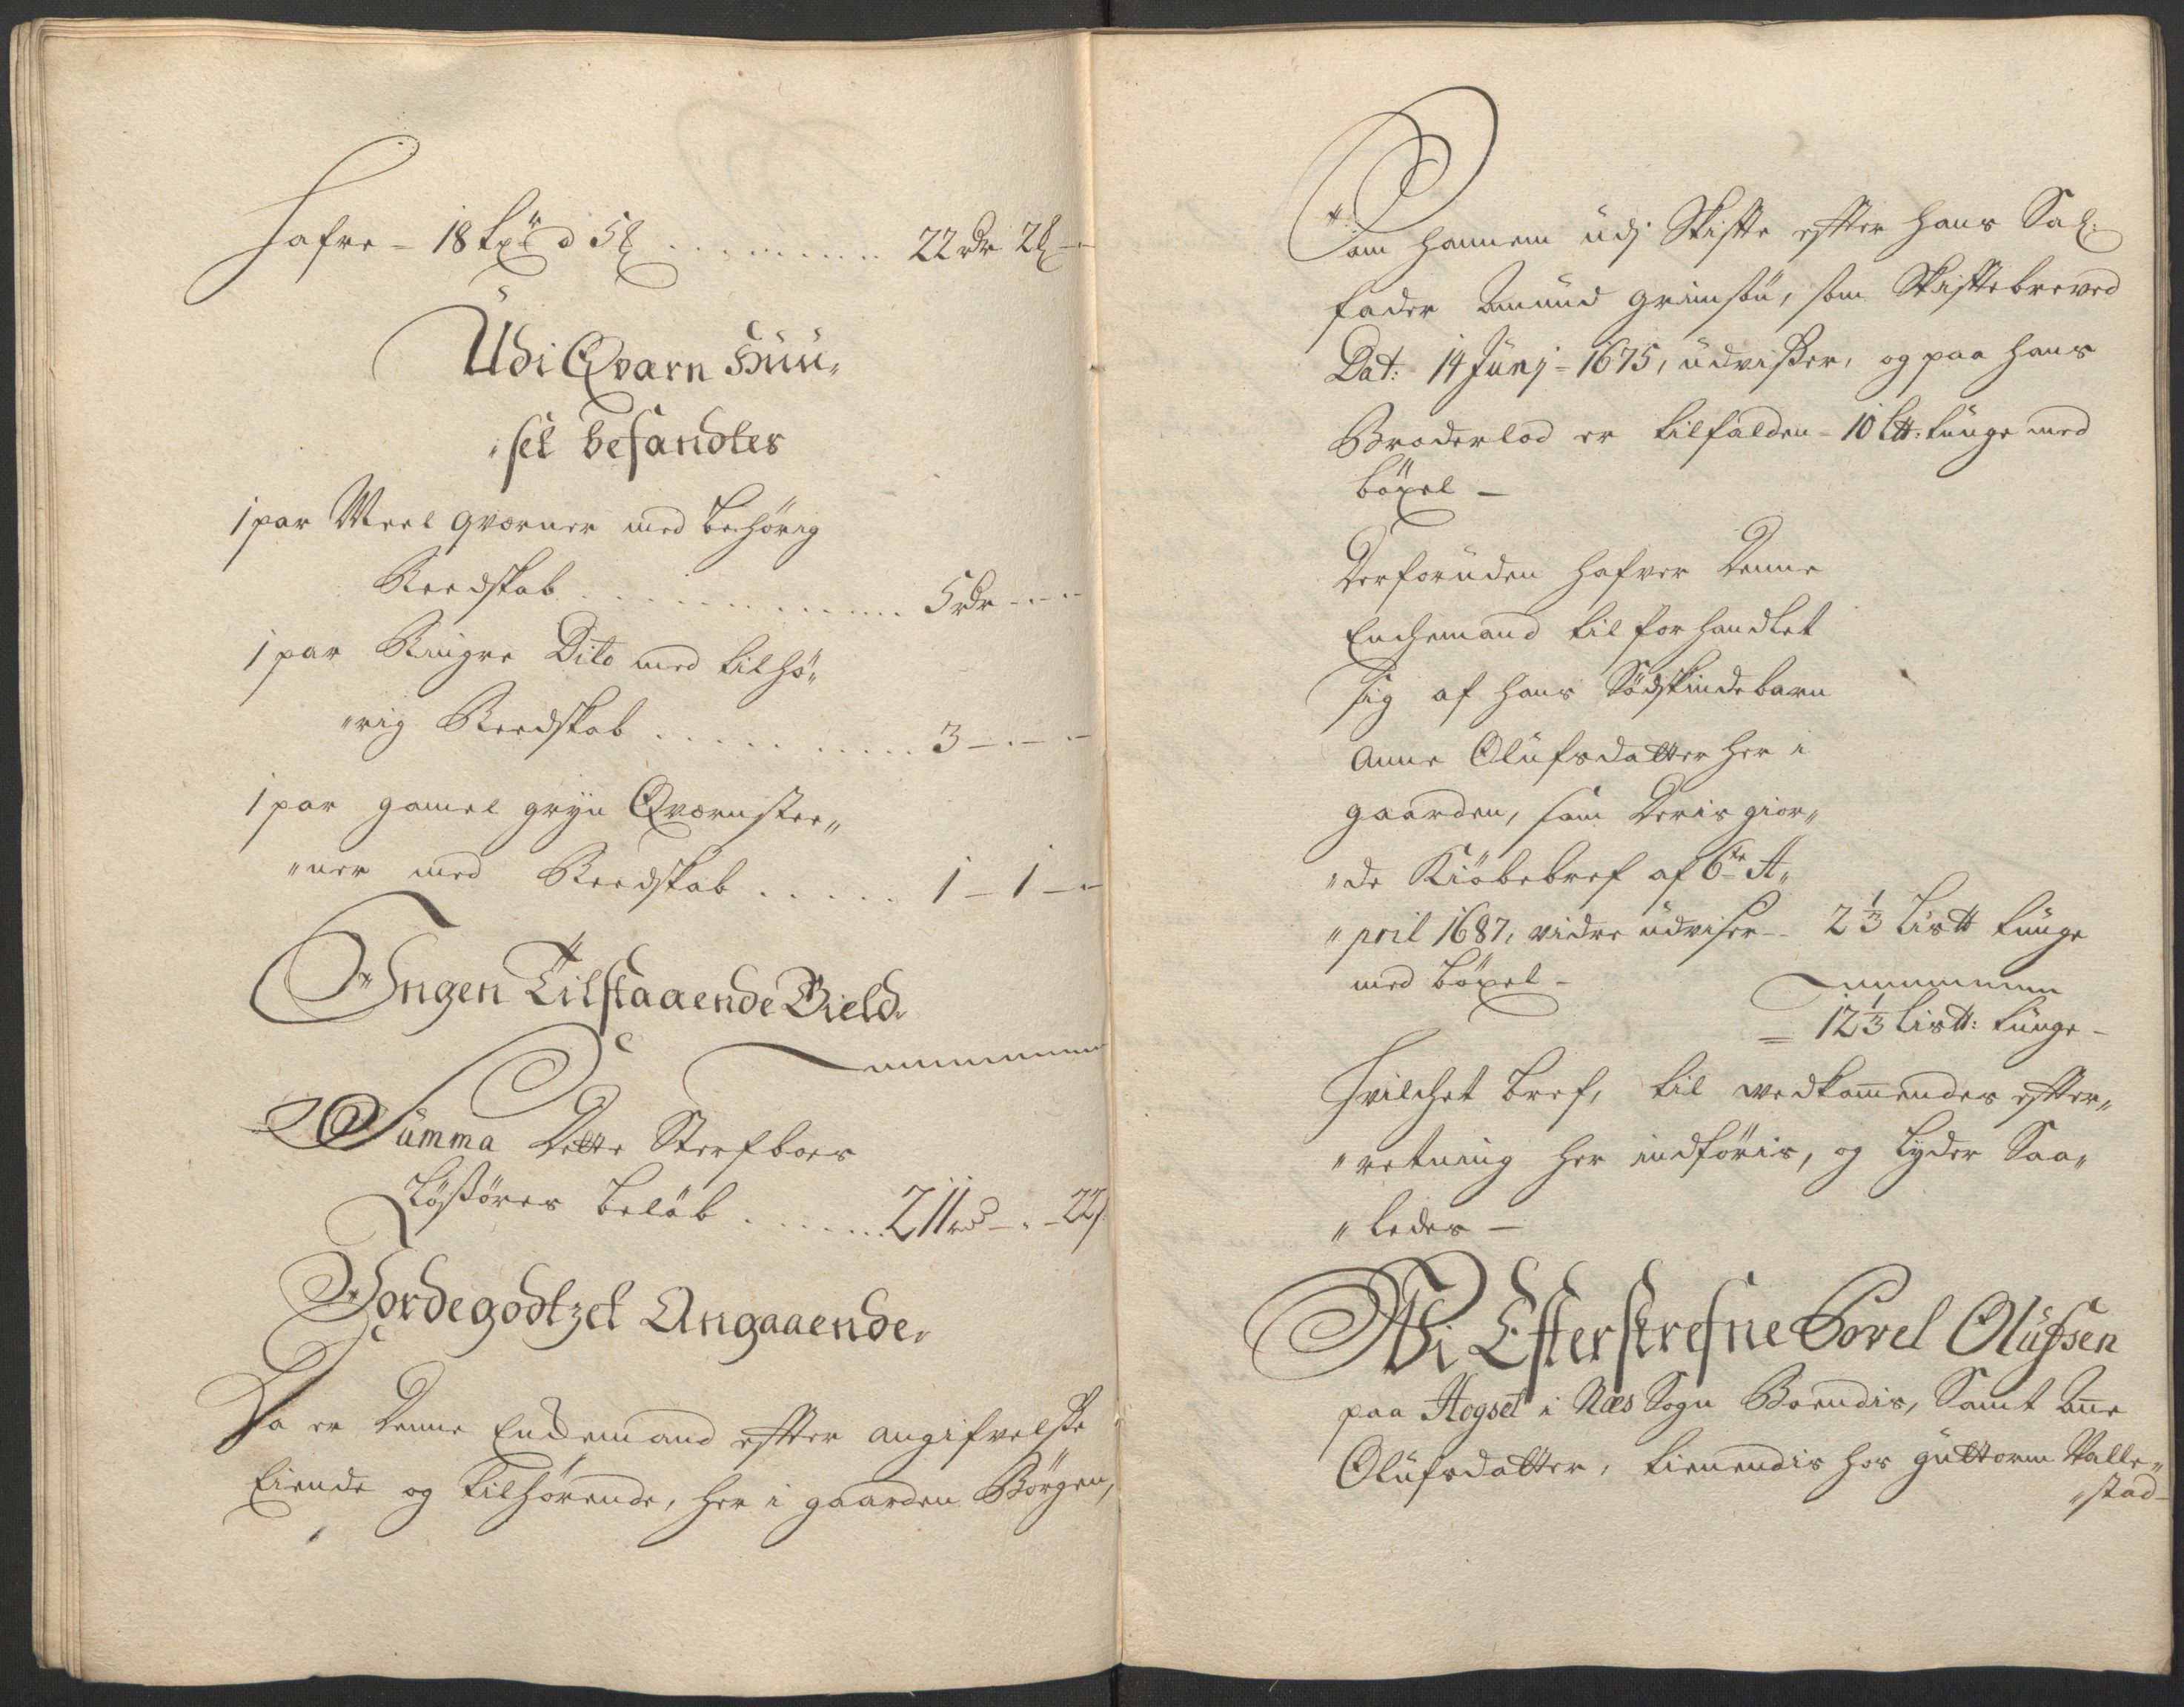 Hafre - 18 tr̄ à 5 ℔ . . . . . . . . . 22 rdr 2 ℔ -
Udi Qværn Huu„
„set befandtes
1 par Meel qværner med behörig
Reedskab . . . . . . . . . . . 5 rdr - . -
1 par Ringre Dito med tilhö„
„rig Reedskab . . . . . . . . . . 3 - . - -
1 par gamel gryn Qværnstee„
„ner med Reedskab . . . . . . 1 - 1 - -
Ingen Tilstaaende Gield.
Summa dette Sterfboes
Lößöres beløb . . . . . . 211 rd - . - 22 ß
Jordegodtzet Angaaende.
Da er denne Enchemand effter angifvelse
Eiende og tilhørende, her i gaarden Börgen,
som hannem udj Skiffte effter hans Sal:
fader Amund Grimstu, som Skifftebreved
Dat: 14 Junj - 1675, udvißer, og paa hans
Broderlod er tilfalden - 10 L℔: tunge med
böxel -
Derforuden hafver denne
Enchemand tilforhandlet
sig af hans Södskindebarn
Anne Olufsdatter her i
gaarden, som deris gior„
„de Kiöbebref af 6te A„
„pril 1687, vidre udviser - - 2⅓ Lis℔ tunge
med böxel -
= 12⅓ Lis℔: tunge -
Hvilchet bref, til vedkom̄endes effter„
„retning her indföris, og lyder Saa„
„ledes -
Wi Efterskrefne Povel Olufsen
paa Hogset i Næs Sogn Boendis, Samt An̄e
Olufsdatter, tienendis hos Guttorm Valle„
„stad -